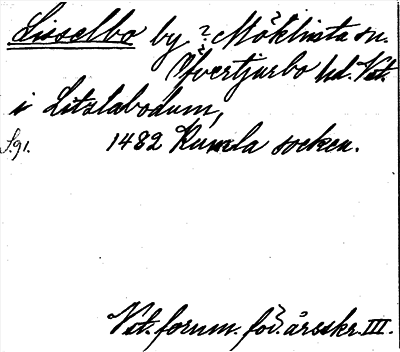 Lisselbo by ? Möklinta sn.
Övertjurbo hd. Vst.
i Litzlabodum,
S. 91. 1482 Rumla socken.
Vst. forum. för. årsskr. III.